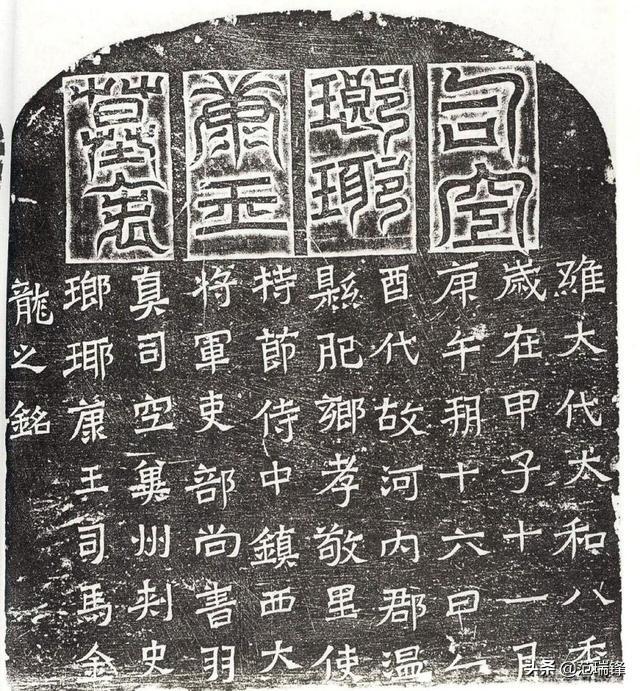 司空
瑯琊
康王
墓表
維大代太和八年
歲在甲子十一月
庚午朔十六日乙
酉代故河内郡溫
縣肥鄉孝敬里使
持節侍中鎮西大
將軍吏部尚書羽
真司空冀州刺史
瑯琊康王司馬金
龍之銘
头条 @范瑞锋